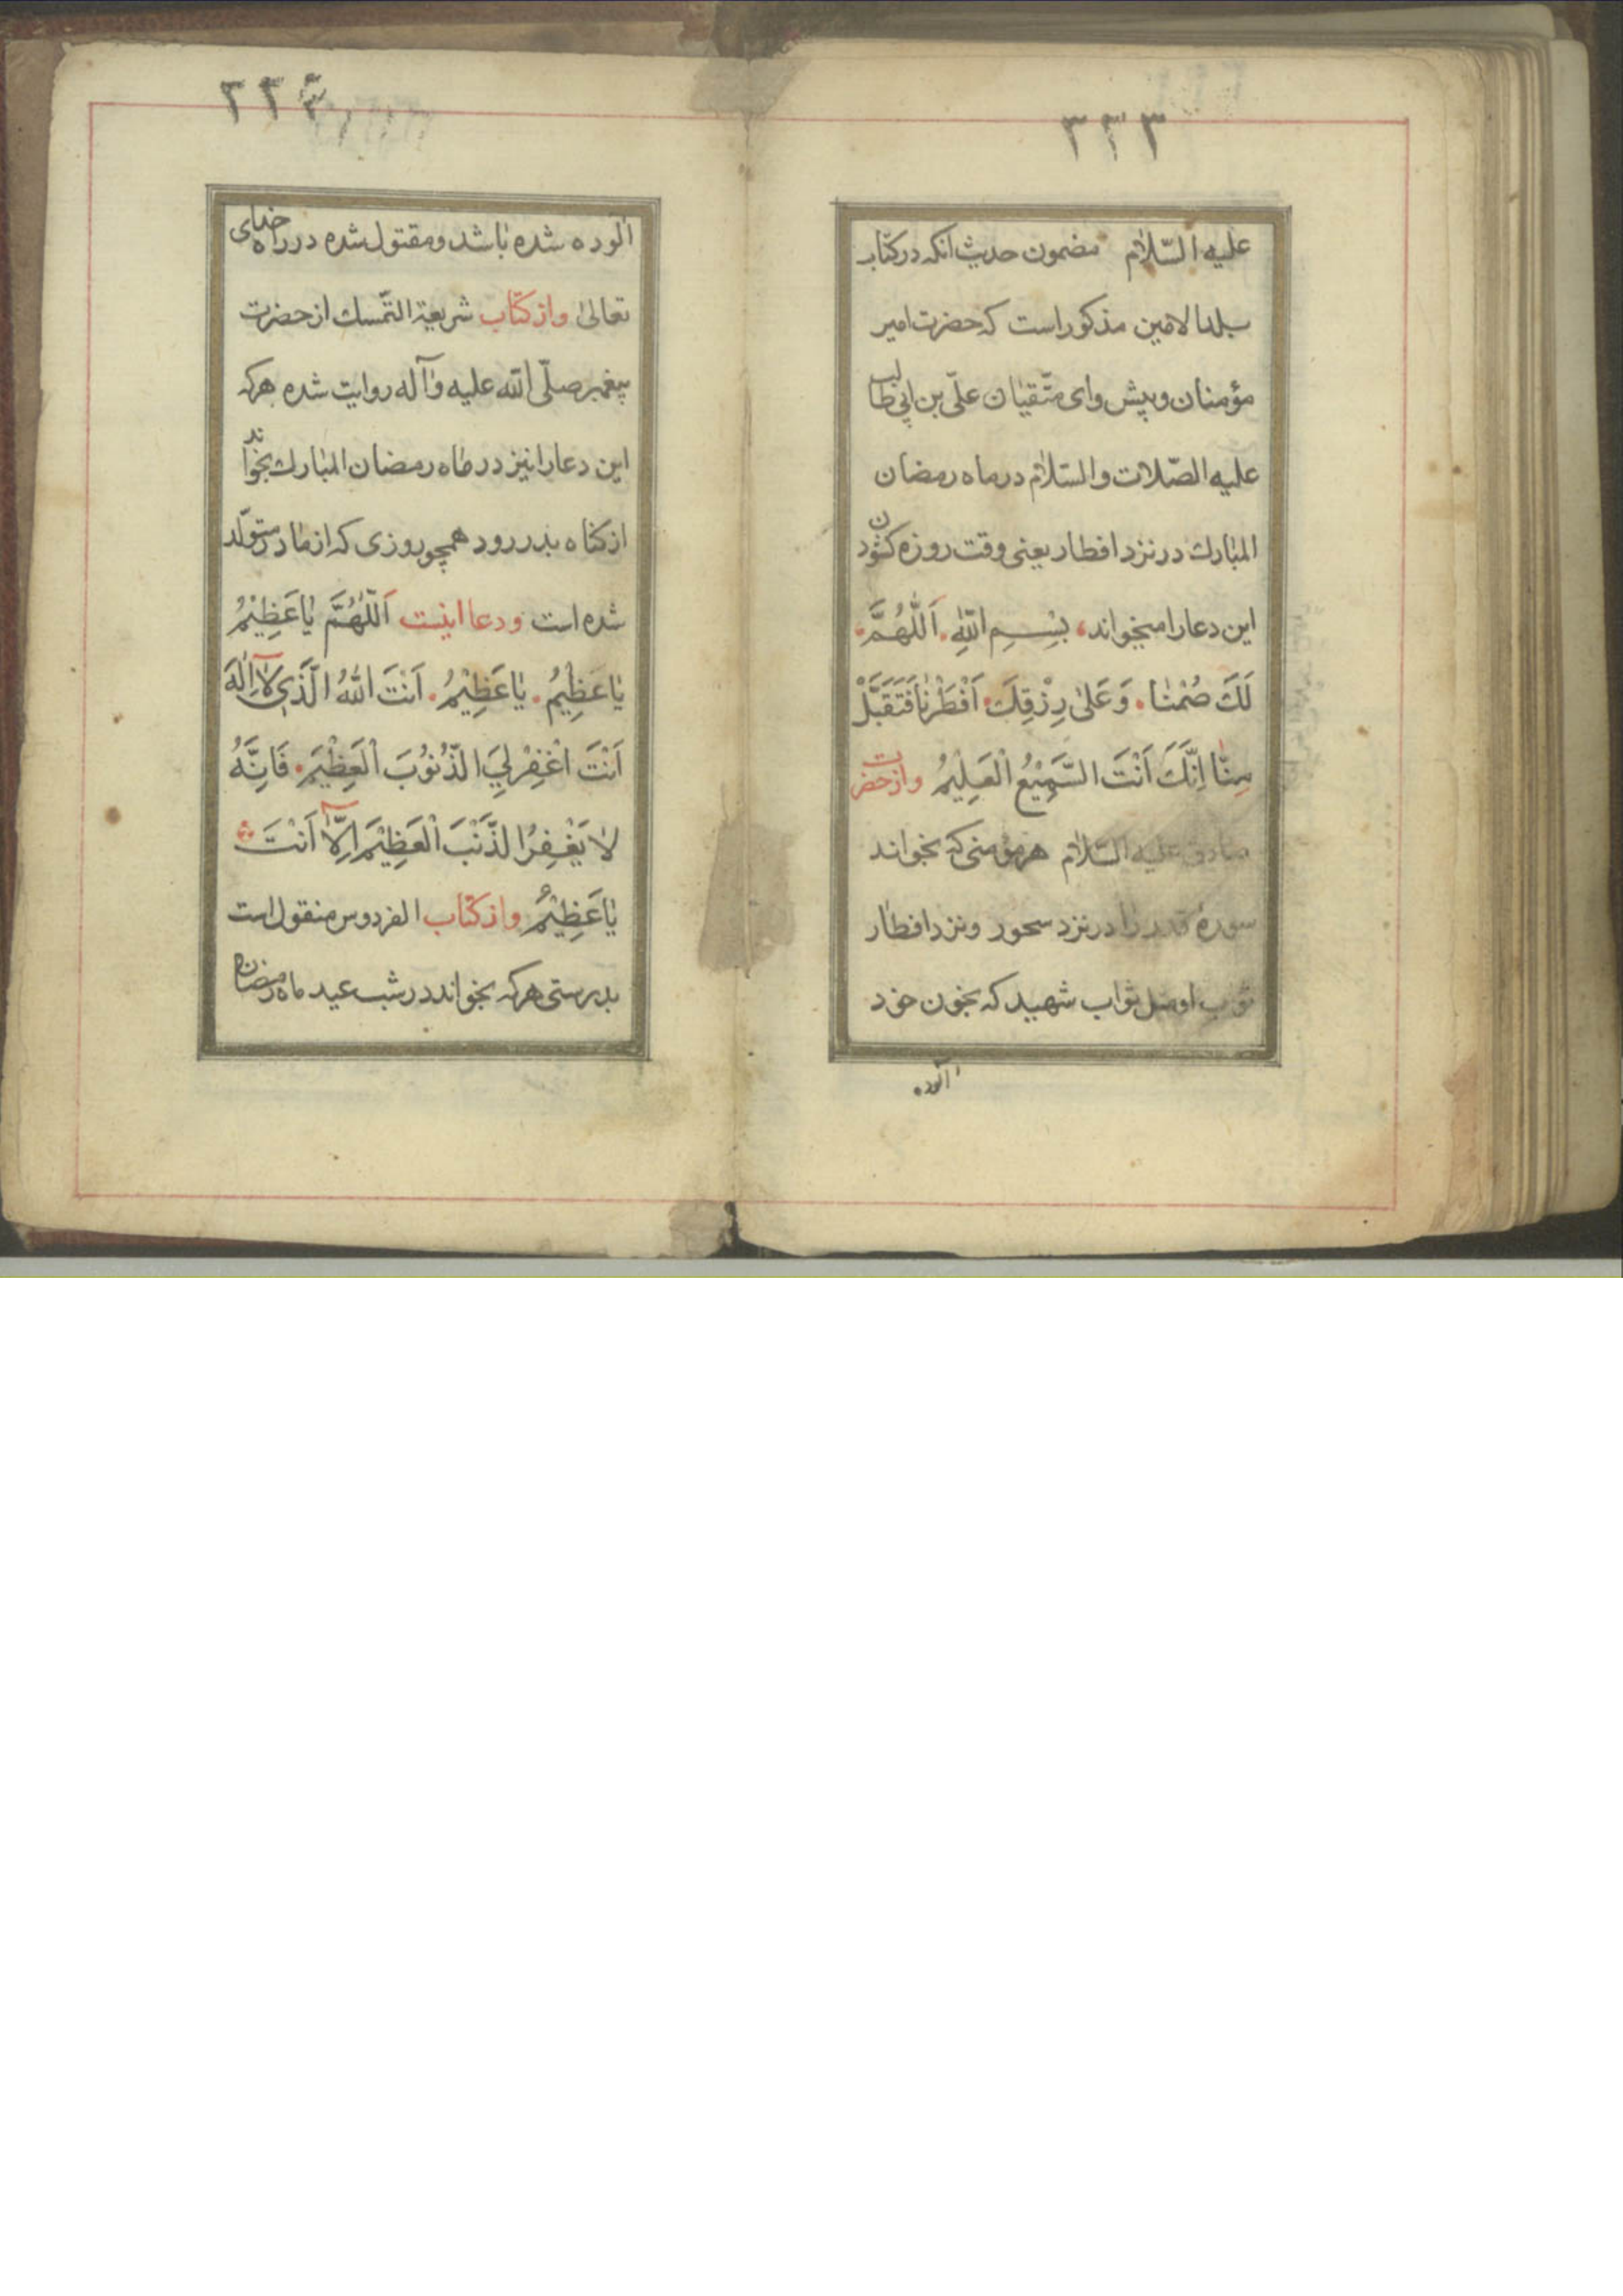 ٣٣٣
علیه السّلام مضمون حدیث انکه درکتاب
بلدالامین مذکوراست که حضرت امیر
مؤمنان وپیش وای متّقیان علّی بن ابی طالب
علیه الصّلات والسّلام درماه رمضان
المبارك درنزد افطار یعنی وقت روزه کشودن
این دعارامیخواند، بِسْمِ اللّهِ. اَللّٰهُمَّ.
لَكَ صُمْنٰا. وَعَلیٰ رِزْقِكَ. اَفْطَرْنٰا فَتَقَبَّلْ
مِنّٰا اِنَّكَ اَنْتَ السَّمِیْعُ الْعَلِیْمُ وازحضرت
صادق علیه السّلام هرمؤمنی که بخواند
سورهٔ قدر را درنزد سحور ونزد افطار
ثواب او مثل ثواب شهید که بخون خود
آلوده
٣٣٤
آلوده شده باشد ومقتول شده در راه خدای
تعالیٰ وازکتاب شریعة التّمسك ازحضرت
پیغمبر صلّی اللّه علیه وآله روایت شده هرکه
این دعارا نیز در ماه رمضان المبارك بخواند
ازکناه بدررود همچو روزی که ازمادر متولّد
شده است ودعا اینست اَللّٰهُمَّ یٰا عَظِیْمُ
یٰا عَظِیْمُ. یٰا عَظِیْمُ. اَنْتَ اللّٰهُ الَّذَیِ لآ اِلٰهَ
اَنْتَ اغْفِرْلِيَ الذُّنُوُبَ الْعَظِیْمَ. فَاِنَّهُ
لاٰ یَغْفِرُ الذَّنْبَ الْعَظِیْمَ اِلّآ اَنْتَ
یٰا عَظِیْمُ وازکتاب الفردوس منقول است
بدرستی هرکه بخواند درشب عید ماه رمضان